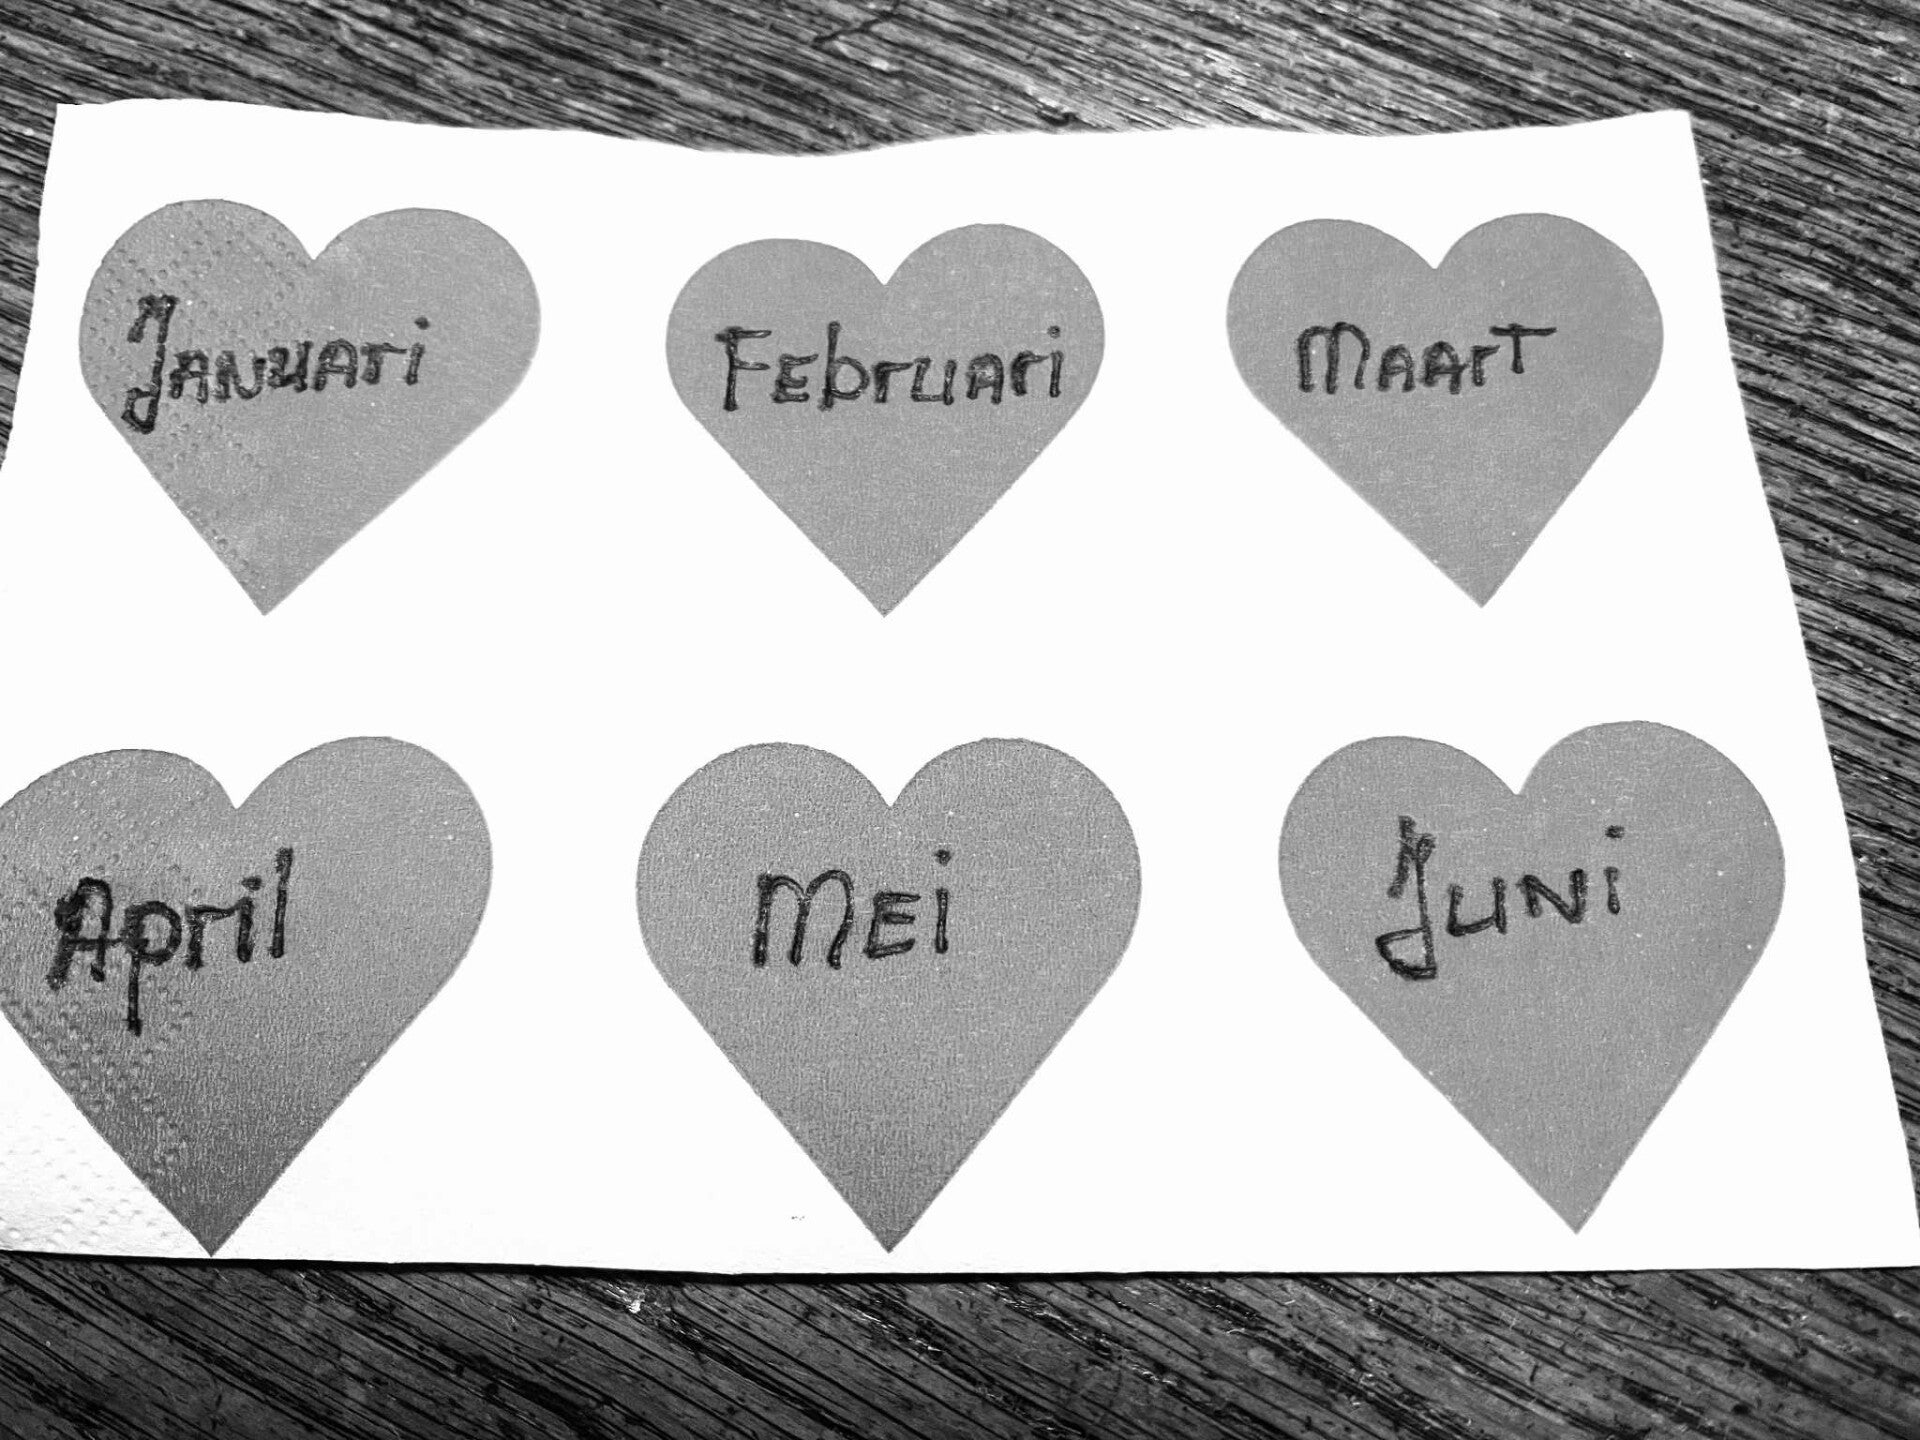 Januari
Februari
Maart
April
Mei
Juni